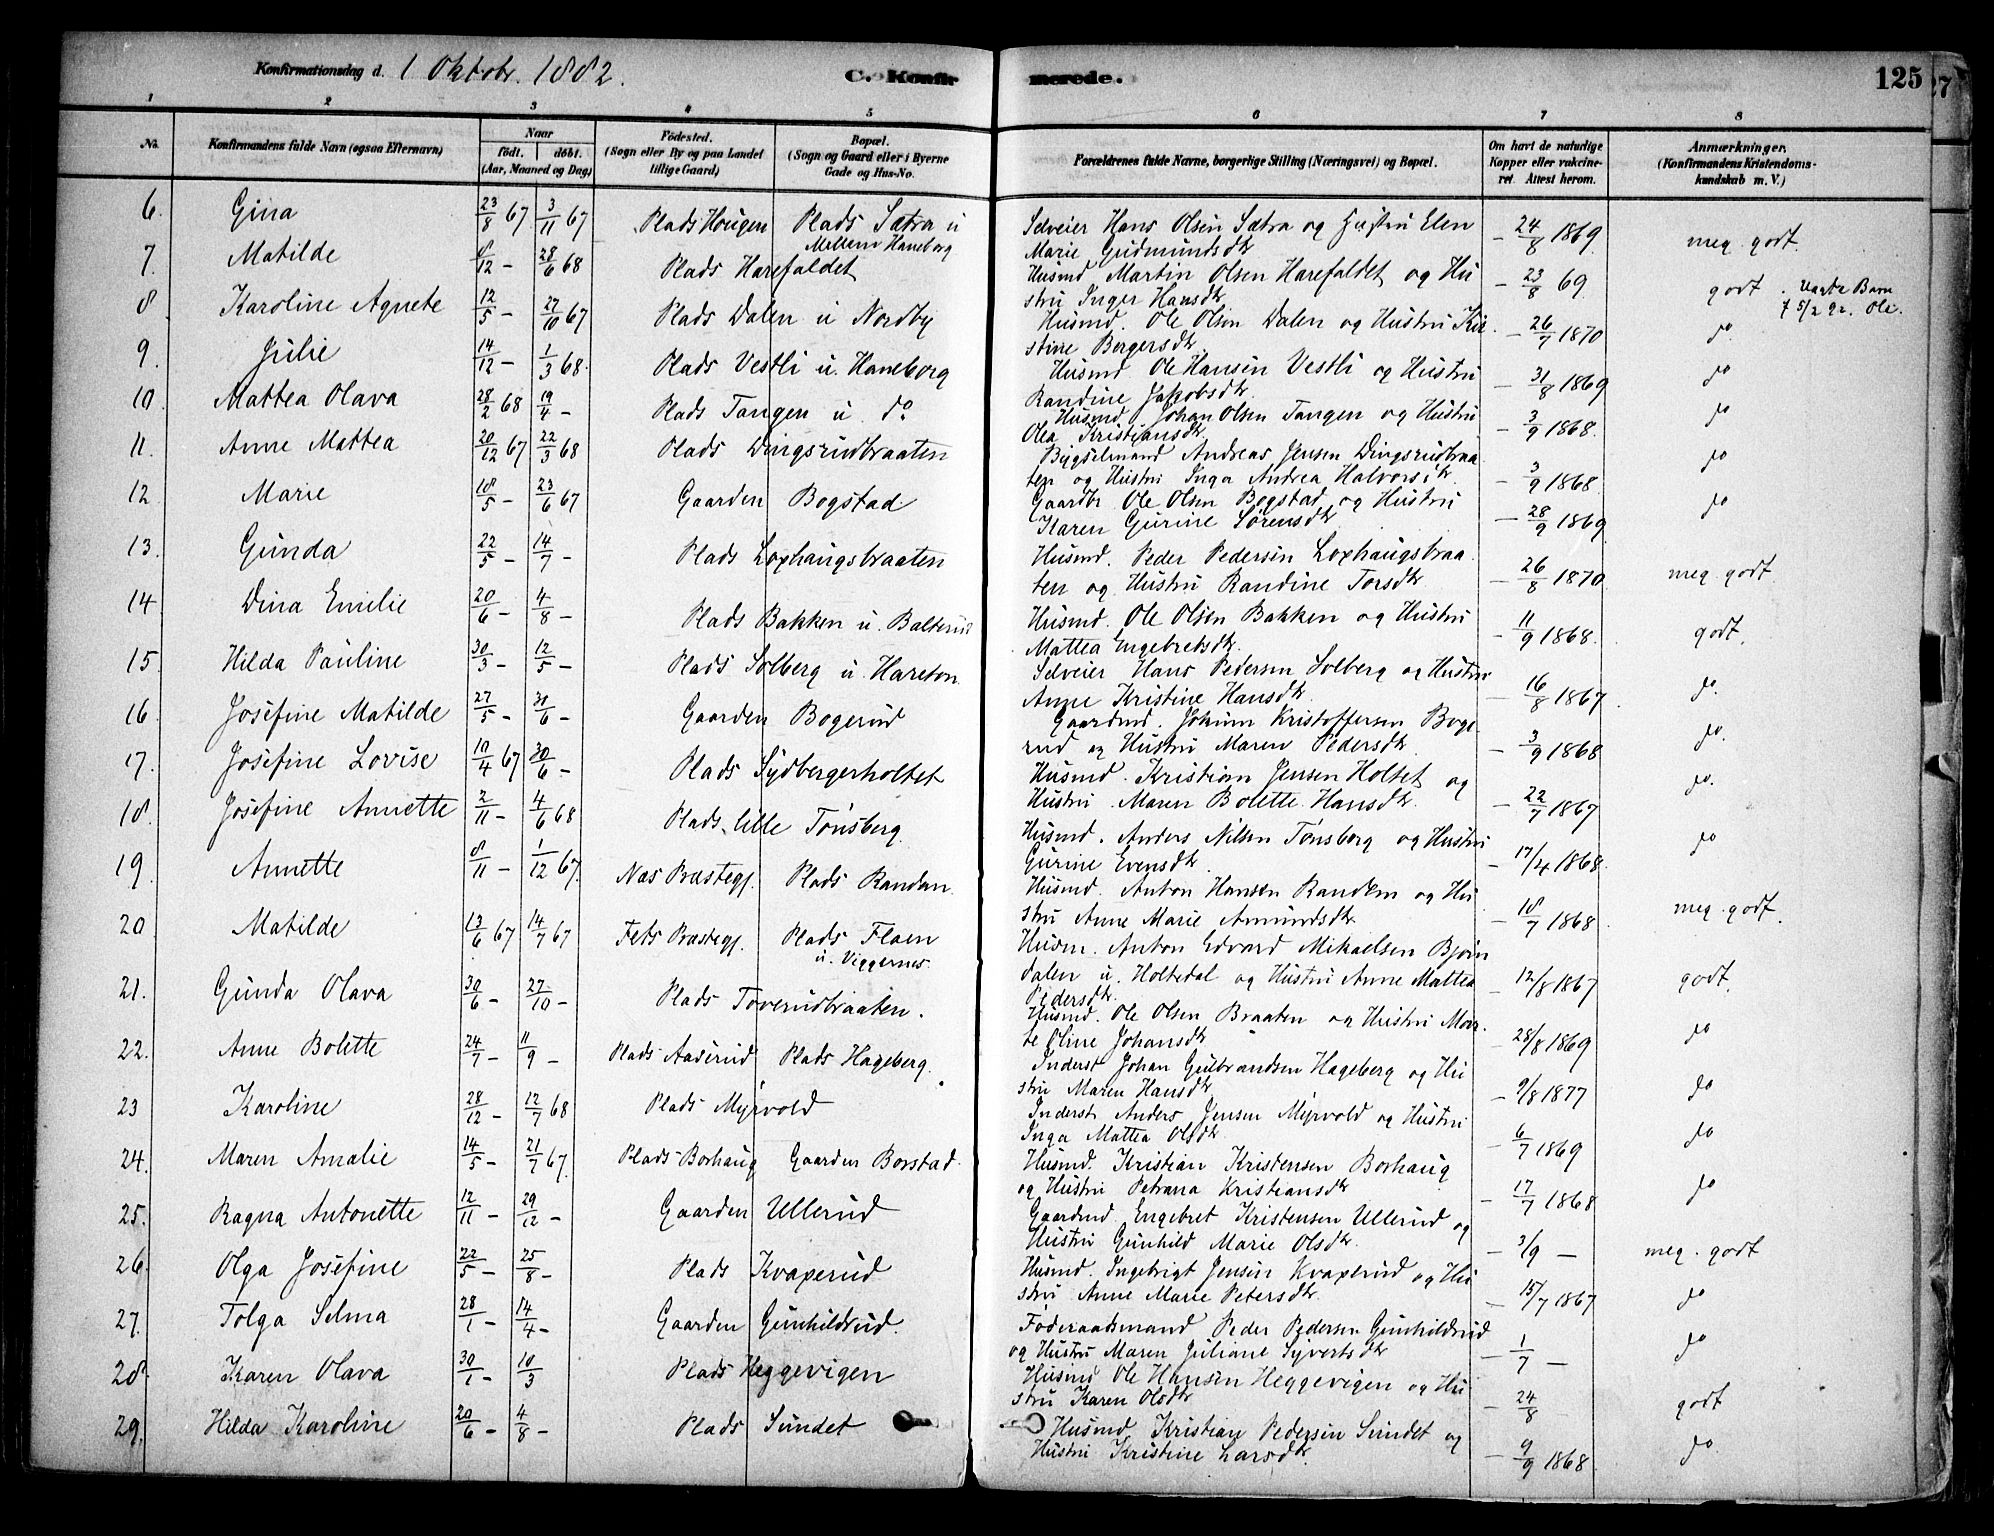 Konfirmationsdag d. 1 Oktobr. 1882.
C. Konfir merede.
125
27
1 2 3 4 5 6 7 8
No.
Konfirmandens fulde Navn (ogsaa Efternavn)
Naar
födt. döbt.
(Aar, Maaned og Dag)
Födested.
(Sogn eller By og paa Landet
tillige Gaard)
Bopæl.
(Sogn og Gaard eller i Byerne
Gade og Hus-No.
Forældrenes fulde Navne, borgerlige Stilling (Næringsvei) og Bopæl.
Om havt de naturlige
Kopper eller vakcine-
ret. Attest herom.
Anmærkninger.
(Konfirmandens Kristendoms-
kundskab m. V.)
6. Gina 23/8 67 3/11 67 Plads Hougen Plads Sætra u Mellem Haneborg Selveier Hans Olsen Sætra og Hustru Elen
Marie Gudmundsdtr - 24/8 1869. meg. godt.
7. Matilde 8/12 - 28/6 68 Plads Harefaldet Husmd Martin Olsen Harefaldet og Hu
stru Inger Hansdtr - 23/8 69. godt.
8. Karoline Agnete 12/5 - 27/10 67 Plads Dalen u Nordby Husmd. Ole Olsen Dalen og Hustru Kir
stine Borgersdtr - 26/7 1870 do
9. Julie 14/12 - 1/3 68. Plads Vestli u. Haneborg Husmd. Ole Hansen Vestli og Hustru
Randine Jakobsdtr - 31/8 1869 do
10. Mattea Olava 28/2 68 19/4 - Plads Tangen u do Husmd Johan Olsen Tangen og Hustru
Olea Kristiansdtr. - 3/9 1868. do
11. Anne Mattea 20/12 67 22/3 68 Plads Dingsrudbraaten Bygselmand Andreas Jensen Dingsrudbraa
ten og Hustru Inga Andrea Halvorsdtr. - 3/9 1868. do
12 Marie 18/5 - 23/6 67 Gaarden Bogstad Gaardbr Ole Olsen Bogstad og Hustru
Karen Gurine Sørensdtr - 28/9 1869 do
13. Gunda 22/5 - 14/7 - Plads Loxhaugsbraaten Husmd. Peder Pedersen Loxhaugsbraa
ten og Hustru Randine Torsdtr - 26/8 1870. meg. godt.
14 Dina Emilie 20/6 - 4/8 - Plads Bakken u. Balterud Husmd. Ole Olsen Bakken og Hustru
Mattea Engebretsdtr. - 11/9 1868. godt.
15. Hilda Pauline 30/3 - 12/5 - Plads Solberg u. Hareton Selveier Hans Pedersen Solberg og Hustru
Anne Kristine Hansdtr. - 16/8 1867. do.
16 Josefine Matilde 27/5 - 30/6 - Gaarden Bogerud Gaardmd. Jokum Kristoffersen Boge
rud og Hustru Maren Pedersdtr. - 3/9 1868 do.
17. Josefine Lovise 10/4 67 30/6 - Plads Sydbergerholtet Husmd. Kristian Jensen Holtet og
Hustru Maren Bolette Hansdtr. - 22/7 1867 do.
18. Josefine Annette 2/11 - 4/6 68 Plads lille Tønsberg Husmd. Anders Nilsen Tønsberg og Hustru
Gurine Evensdtr. - 17/4 1868. do
19. Annette 8/11 - 1/12 67. Næs Præstegj. Plads Randan. Husmd. Anton Hansen Randem og Hu
stru Anne Marie Amundsdtr. - 18/7 1868. meg. godt.
20 Matilde 13/6 67 14/7 67 Fets Præstegj. Plads Flaen u. Viggernes. Husm. Anton Edvard Mikaelsen Bjørn
dalen u. Holtedal og Hustru Anne Mattea
Pedersdtr. - 12/8 1867 godt.
21. Gunda Olava 30/6 - 27/10 - Plads Toverudbraaten. Husmd. Ole Olsen Braaten og Hustru Mar
te Oline Johansdtr - 28/8 1869 do
22. Anne Bolette 24/7 - 11/9 - Plads Aaserud Plads Hageberg. Inderst Johan Gulbrandsen Hageberg og Hu
stru Maren Hansdtr - 9/8 1877 do
23 Karoline 28/12 - 12/7 68 Plads Myrvold Inderst Anders Jensen Myrvold og Hustru
Inga Mattea Olsdtr. - 6/7 1869 do
24. Maren Amalie 14/5 - 21/7 67. Plads Borhaug Gaarden Borstad. Husmd. Kristian Kristensen Borhaug
og Hustru Petrana Kristiansdtr - 17/7 1868 do
25. Ragna Antonette 12/11 - 29/12 - Gaarden Ullerud Gaardmd. Engebret Kristensen Ullerud og
Hustru Gunhild Marie Olsdtr. - 3/9 - meg. godt
26. Olga Josefine 22/5 - 25/8 - Plads Kvaperud Husmd. Ingebrigt Jensen Kvaperud og Hu
stru Anne Marie Petersdtr. - 15/7 1867 do
27. Tolga Selma 28/1 - 14/4 - Gaarden Gunhildrud. Føderaadsmand Peder Pedersen Gunhildrud
og Hustru Maren Juliane Syvertsdtr - 1/7 - do
28. Karen Olava 30/1 - 10/3 Plads Heggevigen Husmd Ole Hansen Heggevigen og Hu
stru Karen Olsdtr - 24/8 godt
29. Hilda Karoline 20/6 - 4/8 - Plads Sundet Husmd. Kristian Pedersen Sundet og
Hustru Kristine Larsdtr. - 9/9 1868 do